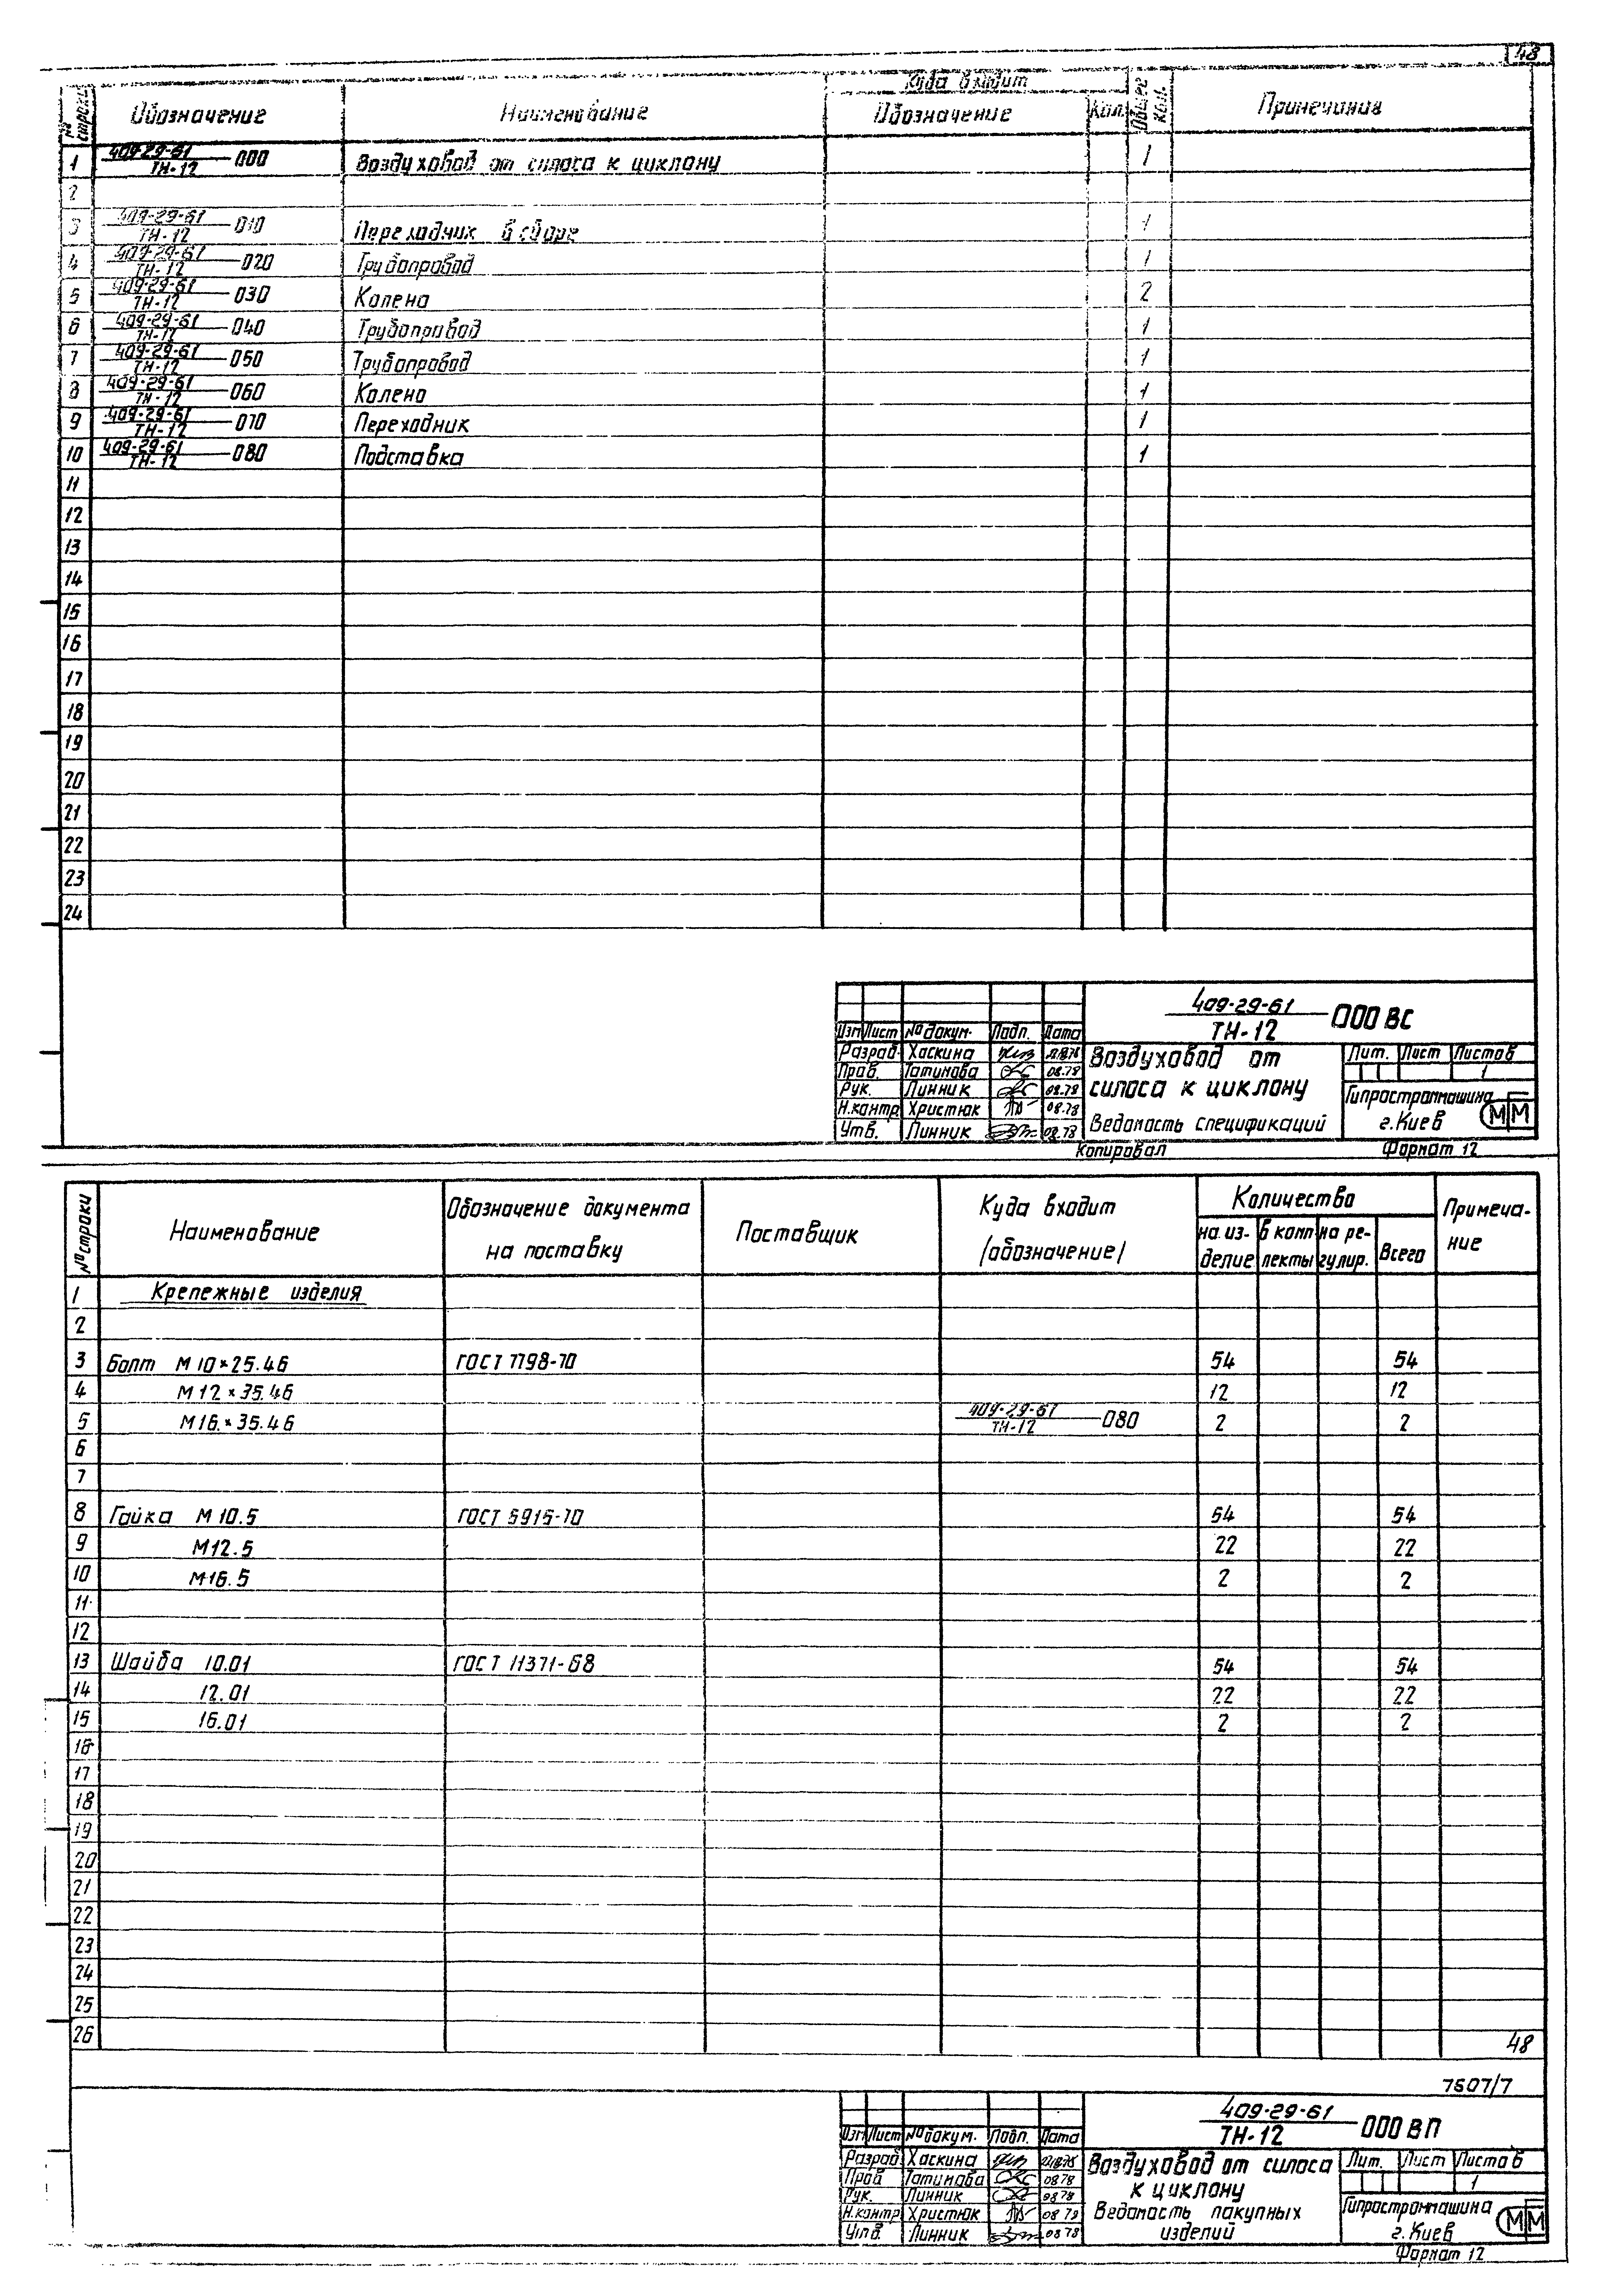 48
№ строки Обозначение Наименование Куда входит Обозначение Кол. Общее кол. Примечания
1 409-29-61/ТН-12 000 Воздуховод от силоса к циклону 1
2
3 409-29-61/ТН-12 010 Переходник в сборе 1
4 409-29-61/ТН-12 020 Трубопровод 1
5 409-29-61/ТН-12 030 Колено 2
6 409-29-61/ТН-12 040 Трубопровод 1
7 409-29-61/ТН-12 050 Трубопровод 1
8 409-29-61/ТН-12 060 Колено 1
9 409-29-61/ТН-12 070 Переходник 1
10 409-29-61/ТН-12 080 Подставка 1
11
12
13
14
15
16
17
18
19
20
21
22
23
24
409-29-61/ТН-12 000 ВС
Изм Лист № докум. Подп. Дата
Разраб. Хаскина
Пров. Татинова 08.78
Рук. Линник 08.78
Н.контр Христюк 08.78
Утв. Линник 08.78
Воздуховод от
силоса к циклону
Ведомость спецификаций
Лит. Лист Листов
1
Гипростроммашина
г. Киев
ММ
Копировал Формат 12
№ строки Наименование Обозначение документа на поставку Поставщик Куда входит /обозначение/ Количество на изделие в комплекты на регулир. Всего Примечание
1 Крепежные изделия
2
3 Болт М10×25.46 ГОСТ 7798-70 54 54
4 М12×35.46 12 12
5 М16×35.46 409-29-61/ТН-12 080 2 2
6
7
8 Гайка М10.5 ГОСТ 5915-70 54 54
9 М12.5 22 22
10 М16.5 2 2
11
12
13 Шайба 10.01 ГОСТ 11371-68 54 54
14 12.01 22 22
15 16.01 2 2
16
17
18
19
20
21
22
23
24
25
26
48
7607/7
409-29-61/ТН-12 000 ВП
Изм Лист № докум. Подп. Дата
Разраб. Хаскина
Пров Татинова 08 78
Рук. Линник 08 78
Н.контр Христюк 08 78
Утв. Линник 08 78
Воздуховод от силоса
к циклону
Ведомость покупных
изделий
Лит. Лист Листов
1
Гипростроммашина
г. Киев
ММ
Формат 12